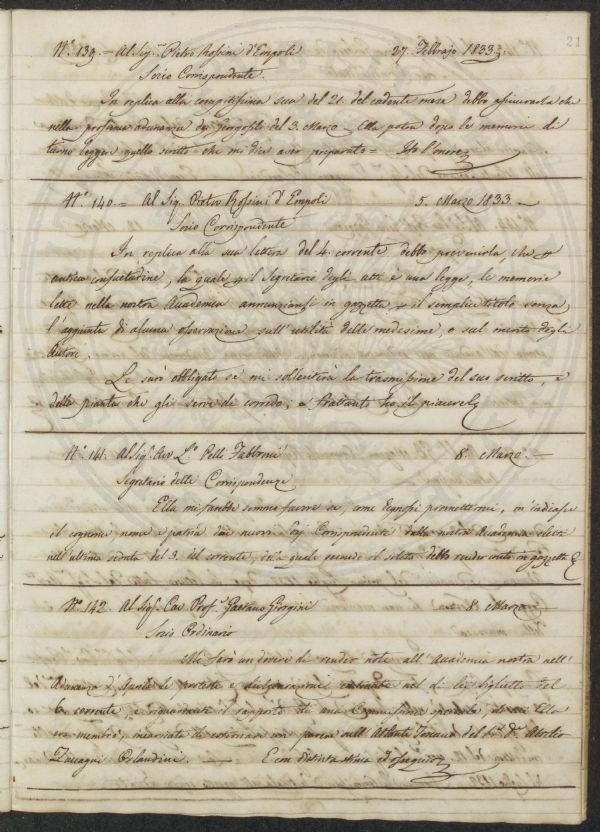 21
N.º 139. = Al Sig.r Pietro Rossini d'Empoli 27 Febbrajo 1833.
Socio Corrispondente.
In replica alla compitissima sua del 21. del cadente mese debbo assicurarla che
nella prossima adunanza dei Georgofili del 3. Marzo Ella potrà dopo le memorie di
turno leggere quello scritto che mi dice aver preparato = Ho l'onore
N.º 140. = Al Sig. Pietro Rossini d'Empoli 5. Marzo 1833. —
Socio Corrispondente
In replica alla sua lettera del 4. corrente debbo prevenirla, che
antica consuetudine, la quale il Segretario degli atti è una legge, le memorie
lette nella nostra Accademia annunziansi in gazzetta il semplice titolo senza
l'aggiunta di alcuna osservazione sull'utilità delle medesime, o sul merito degli
Autori.
Le sarò obbligato se mi solleciterà la trasmissione del suo scritto, e
della pianta che gli serve di corredo; e frattanto ho il piacere
N.º 141. Al Sig.r Cav. L.º Pelli Fabbroni 8. Marzo. —
Segretario delle Corrispondenze
Ella mi farebbe sommo favore se, come degnossi promettermi, m'indicasse
il cognome nome e patria dei nuovi Socj Corrispondenti dalla nostra Accademia eletti
nell'ultima seduta del 3. del corrente, de' quali secondo il solito debbo render conto in gazzetta
N.º 142. Al Sig.r Cav. Prof.r Gaetano Giorgini 8. Marzo —
Socio Ordinario
Mi farò un dovere di render note all'Accademia nostra nell'
Adunanza d'Aprile le proteste e nel di lei biglietto del
6. corrente, e riguardanti il rapporto di una Commissione di cui Ella
era membro, incaricata di esternare un parere sull'Atlante Toscano del Attilio
Zuccagni Orlandini. — E con distinta stima ed ossequio